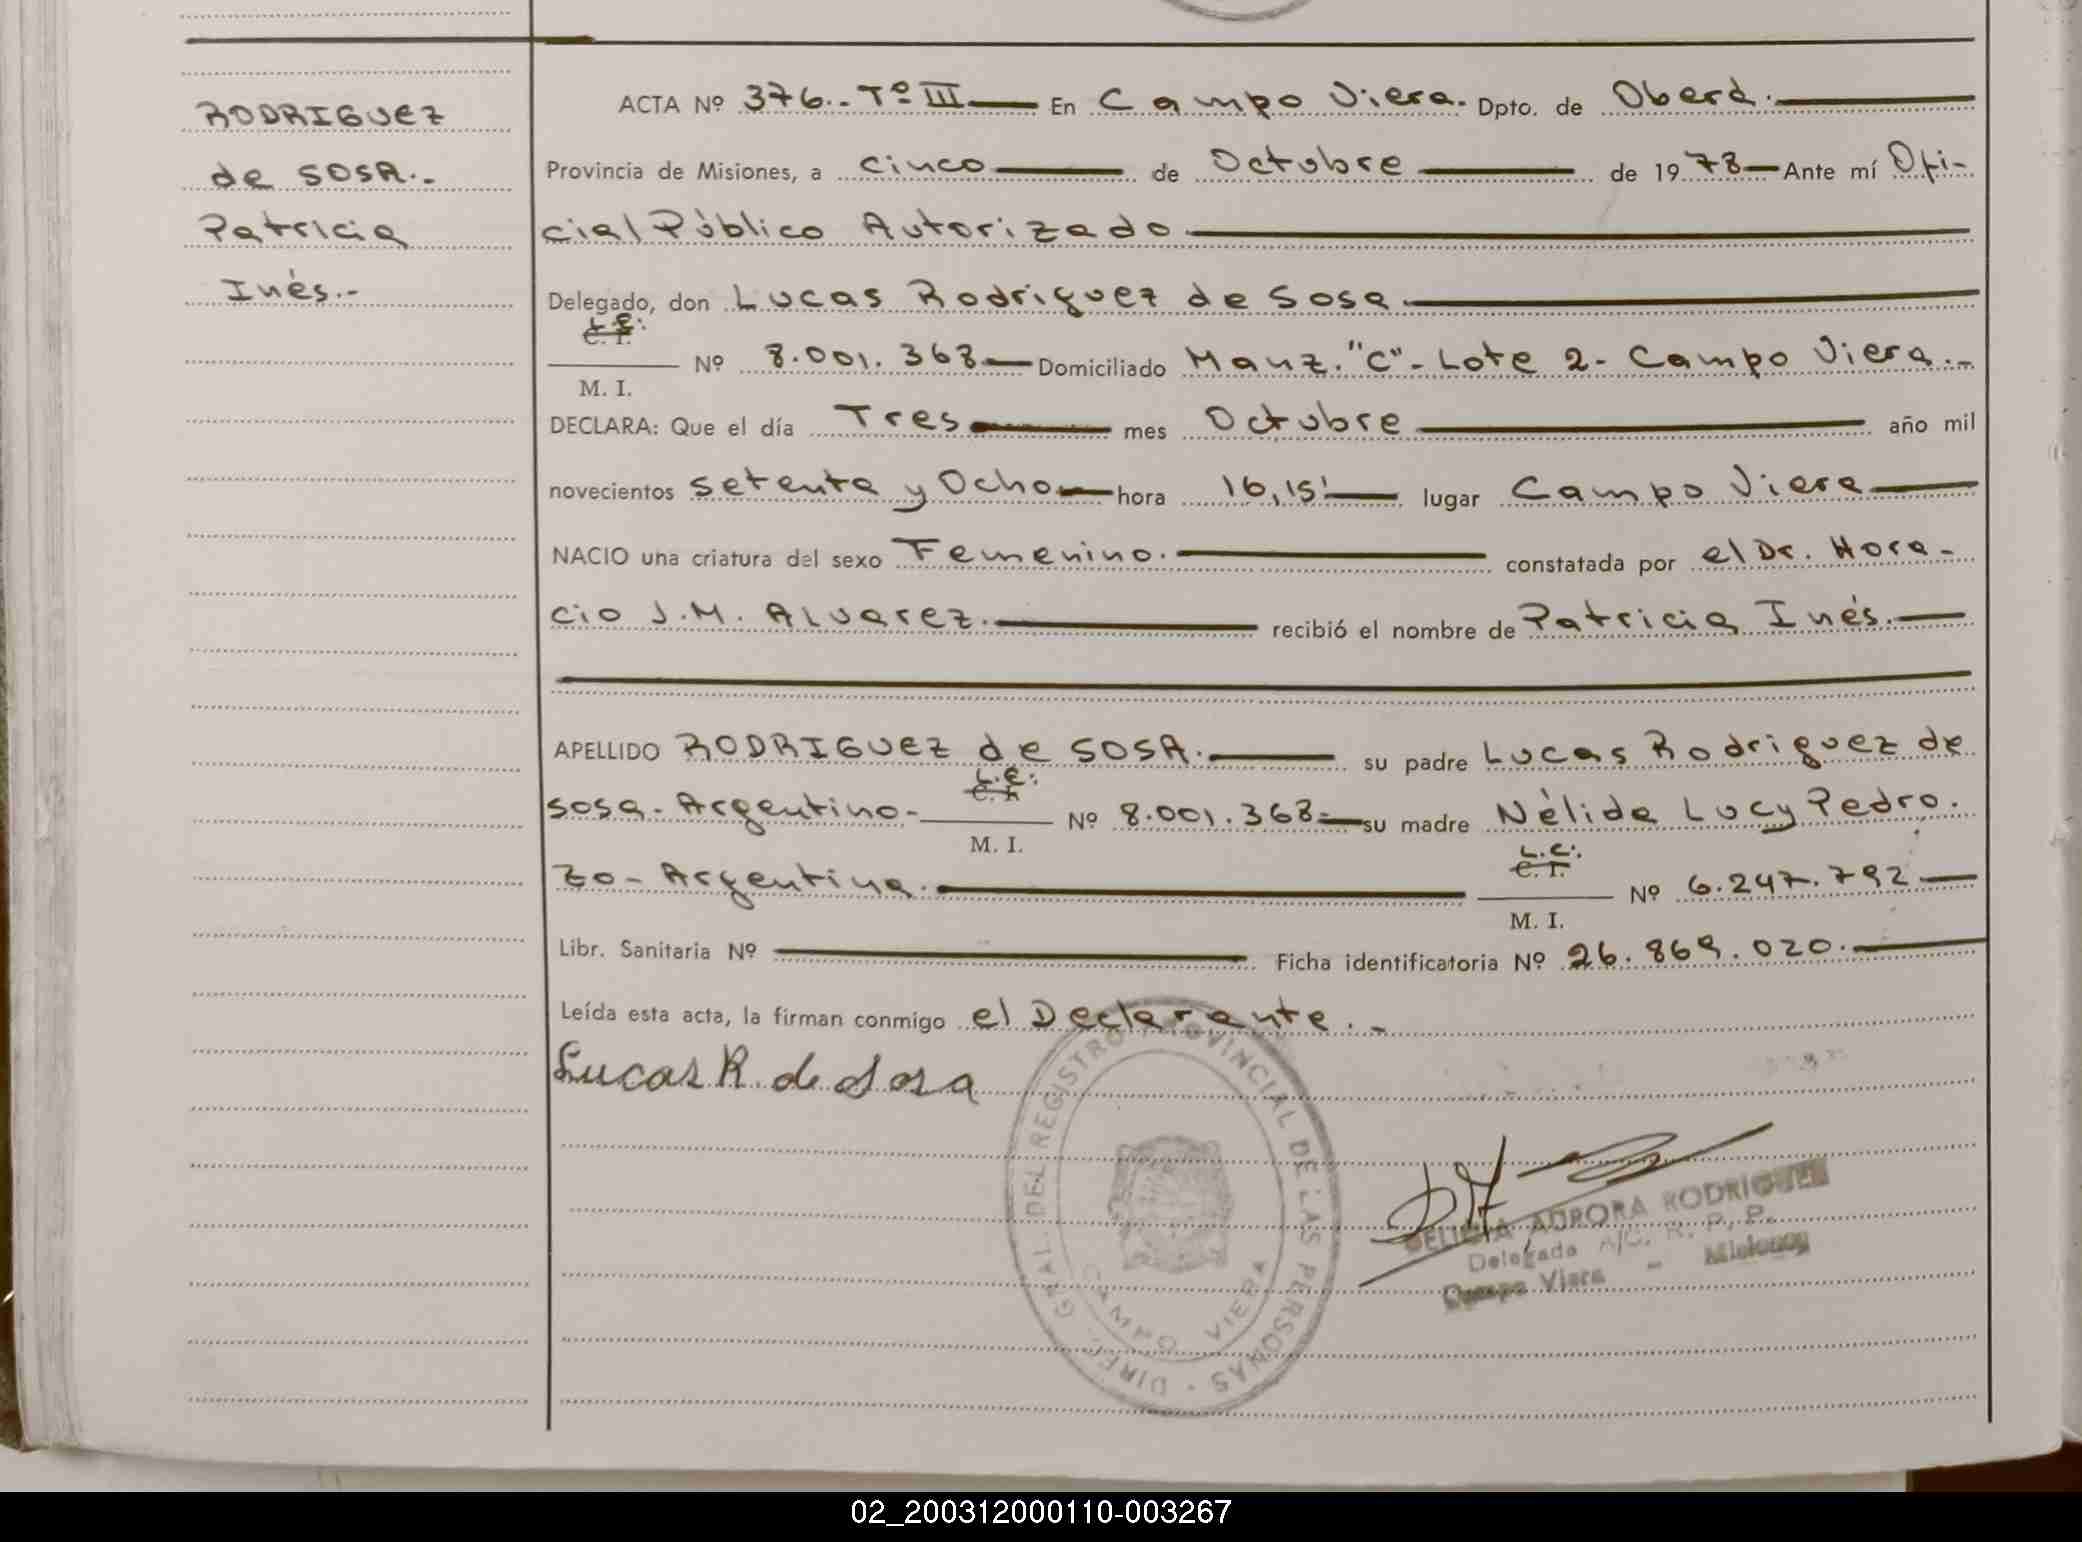 RODRIGUEZ
de SOSA.-
Patricia
Inés.-
ACTA Nº 376.- Tº III — En Campo Viera. Dpto. de Oberá.
Provincia de Misiones, a cinco — de Octubre — de 1978 — Ante mí Ofi-
cial Público Autorizado
Delegado, don Lucas Rodriguez de Sosa
L.E:
C. I.
Nº 8.001.368 — Domiciliado Manz. "C" - Lote 2 - Campo Viera.-
M. I.
DECLARA: Que el día Tres — mes Octubre — año mil
novecientos setenta y Ocho — hora 16,15' — lugar Campo Viera
NACIO una criatura del sexo Femenino. — constatada por el Dr. Hora-
cio J.M. Alvarez. — recibió el nombre de Patricia Inés.
APELLIDO RODRIGUEZ de SOSA. — su padre Lucas Rodriguez de
L.E:
C. I.
Sosa - Argentino - Nº 8.001.368 = su madre Nélida Lucy Pedro.
M. I.
L.C:
C. I.
zo - Argentina. — Nº 6.247.792
M. I.
Libr. Sanitaria Nº — Ficha identificatoria Nº 26.869.020.
Leída esta acta, la firman conmigo el Declarante.-
Lucas R. de Sosa
DIREC. GRAL. DEL REGISTRO PROVINCIAL DE LAS PERSONAS
CAMPO VIERA
AURORA RODRIGUEZ
Delegada A/C. R. P. P.
Campo Viera - Misiones
02_200312000110-003267